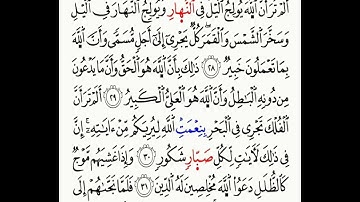 أَلَمْ تَرَ أَنَّ ٱللَّهَ يُولِجُ ٱلَّيْلَ فِى ٱلنَّهَارِ وَيُولِجُ ٱلنَّهَارَ فِى ٱلَّيْلِ
وَسَخَّرَ ٱلشَّمْسَ وَٱلْقَمَرَ كُلٌّ يَجْرِىٓ إِلَىٰٓ أَجَلٍ مُّسَمًّى وَأَنَّ ٱللَّهَ
بِمَا تَعْمَلُونَ خَبِيرٌ ٢٨ ذَٰلِكَ بِأَنَّ ٱللَّهَ هُوَ ٱلْحَقُّ وَأَنَّ مَا يَدْعُونَ
مِن دُونِهِ ٱلْبَٰطِلُ وَأَنَّ ٱللَّهَ هُوَ ٱلْعَلِىُّ ٱلْكَبِيرُ ٢٩ أَلَمْ تَرَ أَنَّ
ٱلْفُلْكَ تَجْرِى فِى ٱلْبَحْرِ بِنِعْمَتِ ٱللَّهِ لِيُرِيَكُم مِّنْ ءَايَٰتِهِۦٓ ۚ إِنَّ
فِى ذَٰلِكَ لَءَايَٰتٍ لِّكُلِّ صَبَّارٍ شَكُورٍ ٣٠ وَإِذَا غَشِيَهُم مَّوْجٌ
كَٱلظُّلَلِ دَعَوُا۟ ٱللَّهَ مُخْلِصِينَ لَهُ ٱلدِّينَ ٣١ فَلَمَّا نَجَّىٰهُمْ إِلَى